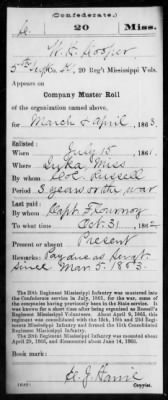 (Confederate.)
20 Miss.
W. H. Hooper
Co. , 20 Reg't Mississippi Vols.
Appears on
Company Muster Roll
of the organization named above,
for March & April, 1863.
Enlisted:
When July 15, 1861.
Where Iuka Miss
By whom Col. Russell
Period 3 years or the war
Last paid:
By whom Capt. Fournoy
To what time Oct. 31, 1862.
Present or absent Present
Remarks: Pay due as Sergt
since Mar. 5. 1863.
The 20th Regiment Mississippi Infantry was mustered
into the Confederate service in July, 1861, for the war, some of
the companies having previously been in the State service. It
was known for a short time after being organized as Russell's
Regiment of Volunteers. About April 9, 1865, this
regiment was consolidated with the 6th and 15th and 23d Regiments
Mississippi Infantry and formed the 15th Consolidated
Regiment Mississippi Infantry.
The 20th Regiment Mississippi Infantry was mounted about
Book mark:
Copyist.